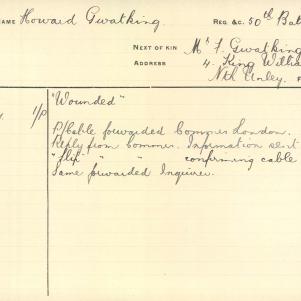 NAME Howard Gwatking. REG. &C. 50th Bat
NEXT OF KIN Mr F. Gwatking
ADDRESS 4. King Willia
Nth Unley.
1/P "Wounded"
P/Cable forwarded Commrs London.
Reply from Commrs. Information sent
"flix" " " confirming cable
Same forwarded Inquirer.